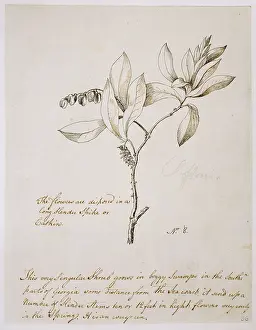 The flowers are disposed in a
long slender Spike or
Catkin.
No. 8.
This very Singular Shrub grows in boggy Swamps in the South
parts of Georgia some distance from the Sea coast it send up a
Number of slender Stems ten or 12 feet in hight flowers very early
in the Spring,